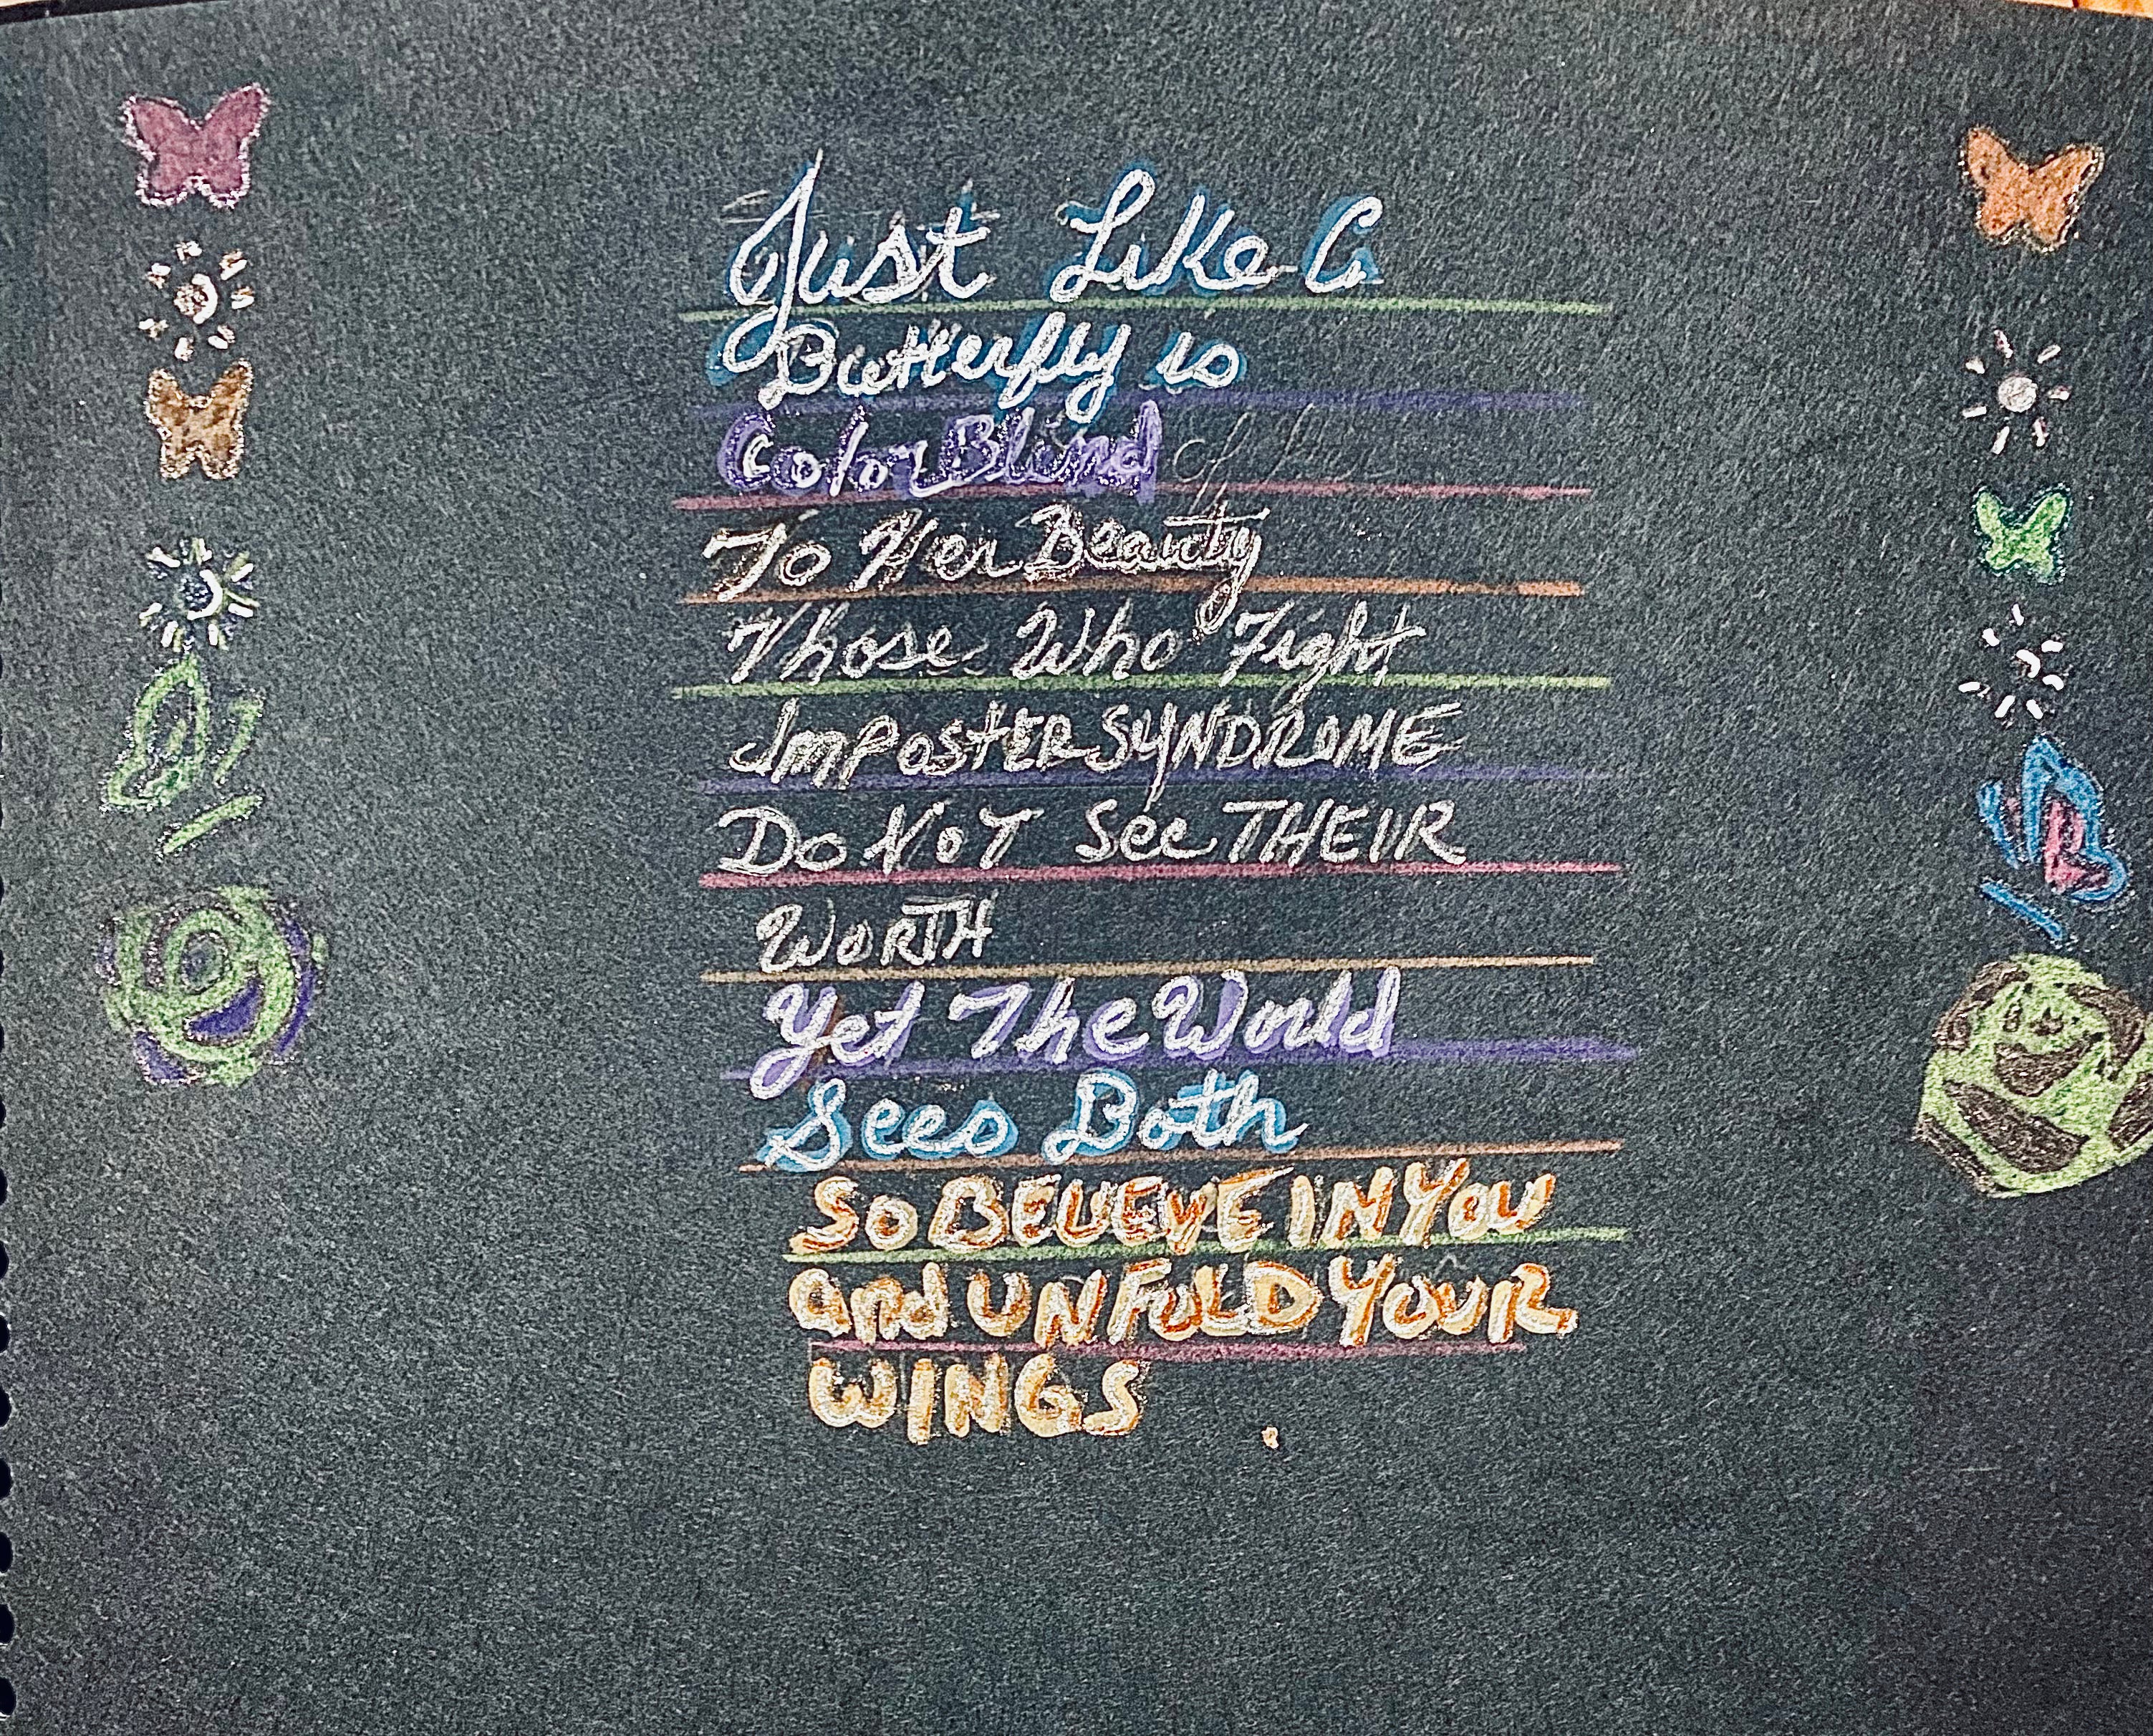 Just Like a
Butterfly is
Color Blind
To Her Beauty
Those Who Fight
IMPOSTER SYNDROME
Do NOT See THEIR
WORTH
Yet The World
Sees Both
So BELIEVE IN YOU
and UNFOLD YOUR
WINGS